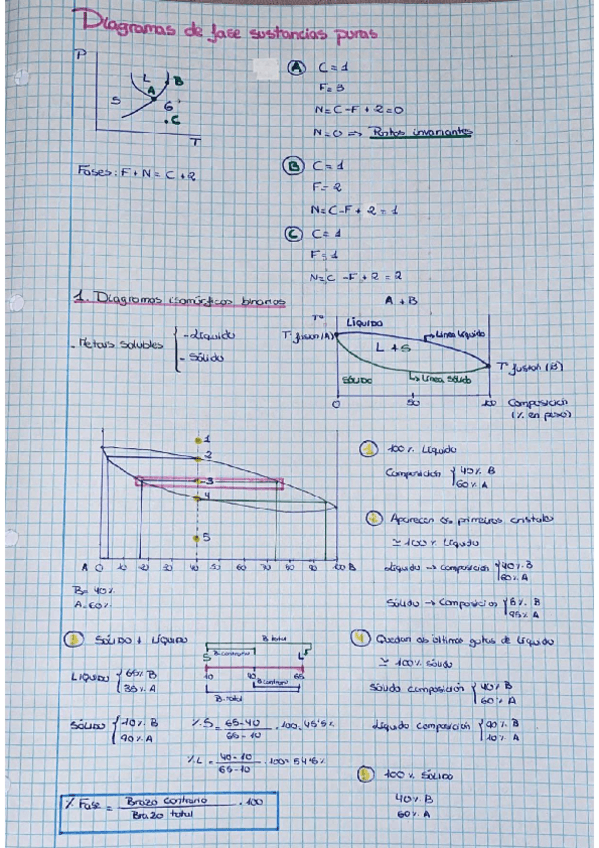 Diagramas de fase sustancias puras
P
L
B
A
S
G
C
T
Fases: F + N = C + 2
A C = 1
F = 3
N = C - F + 2 = 0
N = 0 => Puntos invariantes
B C = 1
F = 2
N = C - F + 2 = 1
C C = 1
F = 1
N = C - F + 2 = 2
1. Diagramas isomórficos binarios
- Metais solubles
- Líquido
- Sólido
A + B
Tº
Líquido
Tº fusión (A)
Línea líquido
L + S
Tº fusión (B)
SÓLIDO
Línea sólido
0 50 100 Composición
(% en peso)
1
2
3
4
5
A 0 10 20 30 40 50 60 70 80 90 100 B
B = 40%
A = 60%
1 100% Líquido
Composición
40% B
60% A
2 Aparecen os primeiros cristales
≃ 100% Líquido
Líquido → composición
40% B
60% A
Sólido → Composición
5% B
95% A
3 SÓLIDO + LÍQUIDO
LÍQUIDO
65% B
35% A
SÓLIDO
10% B
90% A
B total
B contrario
S L
10 40 65
B contrario
B total
% S = 65-40 / 65-10 . 100 = 45'5%
% L = 40-10 / 65-10 . 100 = 54'5%
% Fase = Brazo contrario / Brazo total . 100
4 Quedan as últimas gotas de líquido
≃ 100% Sólido
Sólido composición
40% B
60% A
Líquido composición
90% B
10% A
5 100% Sólido
40% B
60% A